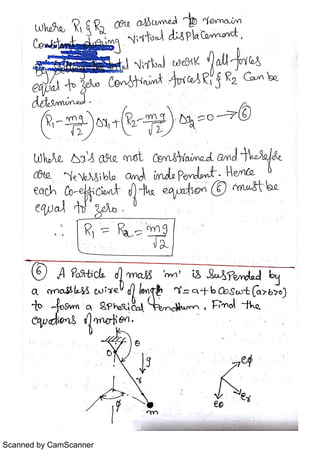 where R₁ & R₂ are assumed to remain
Constant during virtual displacement.
virtual work of all forces
equal to zero Constraint forces R₁ & R₂ Can be
determined.
(R₁ - mg/√2) Δs₁ + (R₂ - mg/√2) · Δs₂ = 0 → ⑥
Where Δs's are not Constrained and therefore
are reversible and independent. Hence
each Co-efficient of the equation ⑥ must be
equal to zero.
∴ R₁ = R₂ = mg/√2
⑥ A Particle of mass 'm' is Suspended by
a massless wire of length r = a + b Cosωt (a>b>0)
to form a Spherical Pendulum. Find the
equations of motion.
O θ
g eϕ
r
eθ er
ϕ m
Scanned by CamScanner